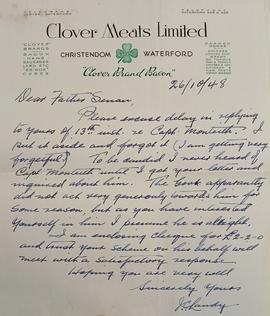 Clover Meats Limited
CHRISTENDOM WATERFORD
"Clover Brand Bacon"
26/10/48
Dear Father Senan,
Please excuse delay in replying
to yours of 13th inst. re Capt. Monteith. I
put it aside and forgot it (I am getting very
forgetful) To be candid I never heard of
Capt Monteith until I got your letter and
inquired about him. The Govt apparently
did not act very generously towards him for
some reason, but as you have interested
yourself in him I presume he is alright.
I am enclosing cheque for £2-2-0
and trust your scheme on his behalf will
meet with a satisfactory response
Hoping you are very well
Sincerely Yours